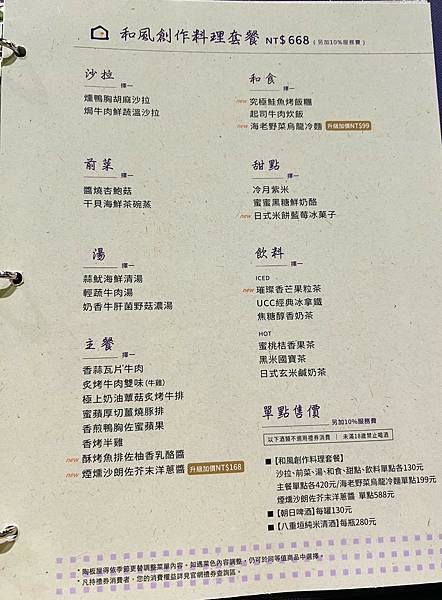 和風創作料理套餐 NT$668 (另加10%服務費)
沙拉 擇一
燻鴨胸胡麻沙拉
焗牛肉鮮蔬溫沙拉
前菜 擇一
醬燒杏鮑菇
干貝海鮮茶碗蒸
湯 擇一
蒜魷海鮮清湯
輕蔬牛肉湯
奶香牛肝菌野菇濃湯
主餐 擇一
香蒜瓦片牛肉
炙烤牛肉雙味(牛雞)
極上奶油蕈菇炙烤牛排
蜜蘋厚切薑燒豚排
香煎鴨胸佐蜜蘋果
香烤半雞
new 酥烤魚排佐柚香乳酪醬
new 煙燻沙朗佐芥末洋蔥醬 升級加價NT$168
和食 擇一
new 究極鮭魚烤飯糰
起司牛肉炊飯
new 海老野菜烏龍冷麵 升級加價NT$99
甜點 擇一
冷月紫米
蜜蜜黑糖鮮奶酪
new 日式米餅藍莓冰菓子
飲料 擇一
ICED
new 璀璨香芒果粒茶
UCC經典冰拿鐵
焦糖醇香奶茶
HOT
蜜桃桔香果茶
黑米國寶茶
日式玄米鹹奶茶
單點售價 另加10%服務費
以下酒類不適用禮券消費 | 未滿18歲禁止喝酒
■【和風創作料理套餐】
沙拉、前菜、湯、和食、甜點、飲料單點各130元
主餐單點各420元/海老野菜烏龍冷麵單點199元
煙燻沙朗佐芥末洋蔥醬 單點588元
■【朝日啤酒】每罐130元
■【八重垣純米清酒】每瓶280元
* 陶板屋得依季節更替調整菜單內容。如遇菜色內容調整，仍可於同等值商品中選擇。
* 凡持禮券消費者，您的消費權益詳見官網禮券查詢區。